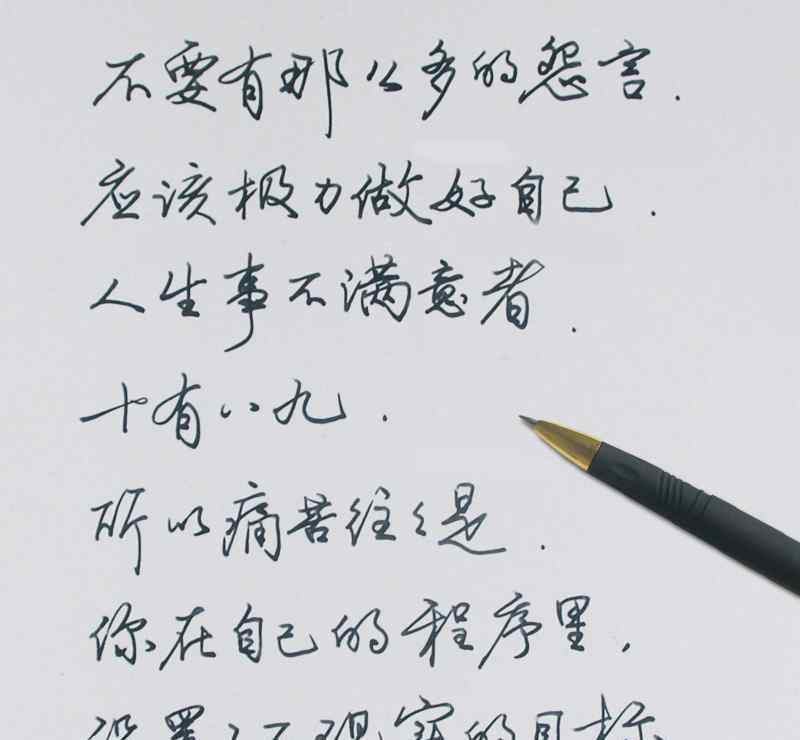 不要有那么多的怨言.
应该极力做好自己.
人生事不满意者.
十有八九.
所以痛苦往々是.
你在自己的程序里,
设置了不现实的目标